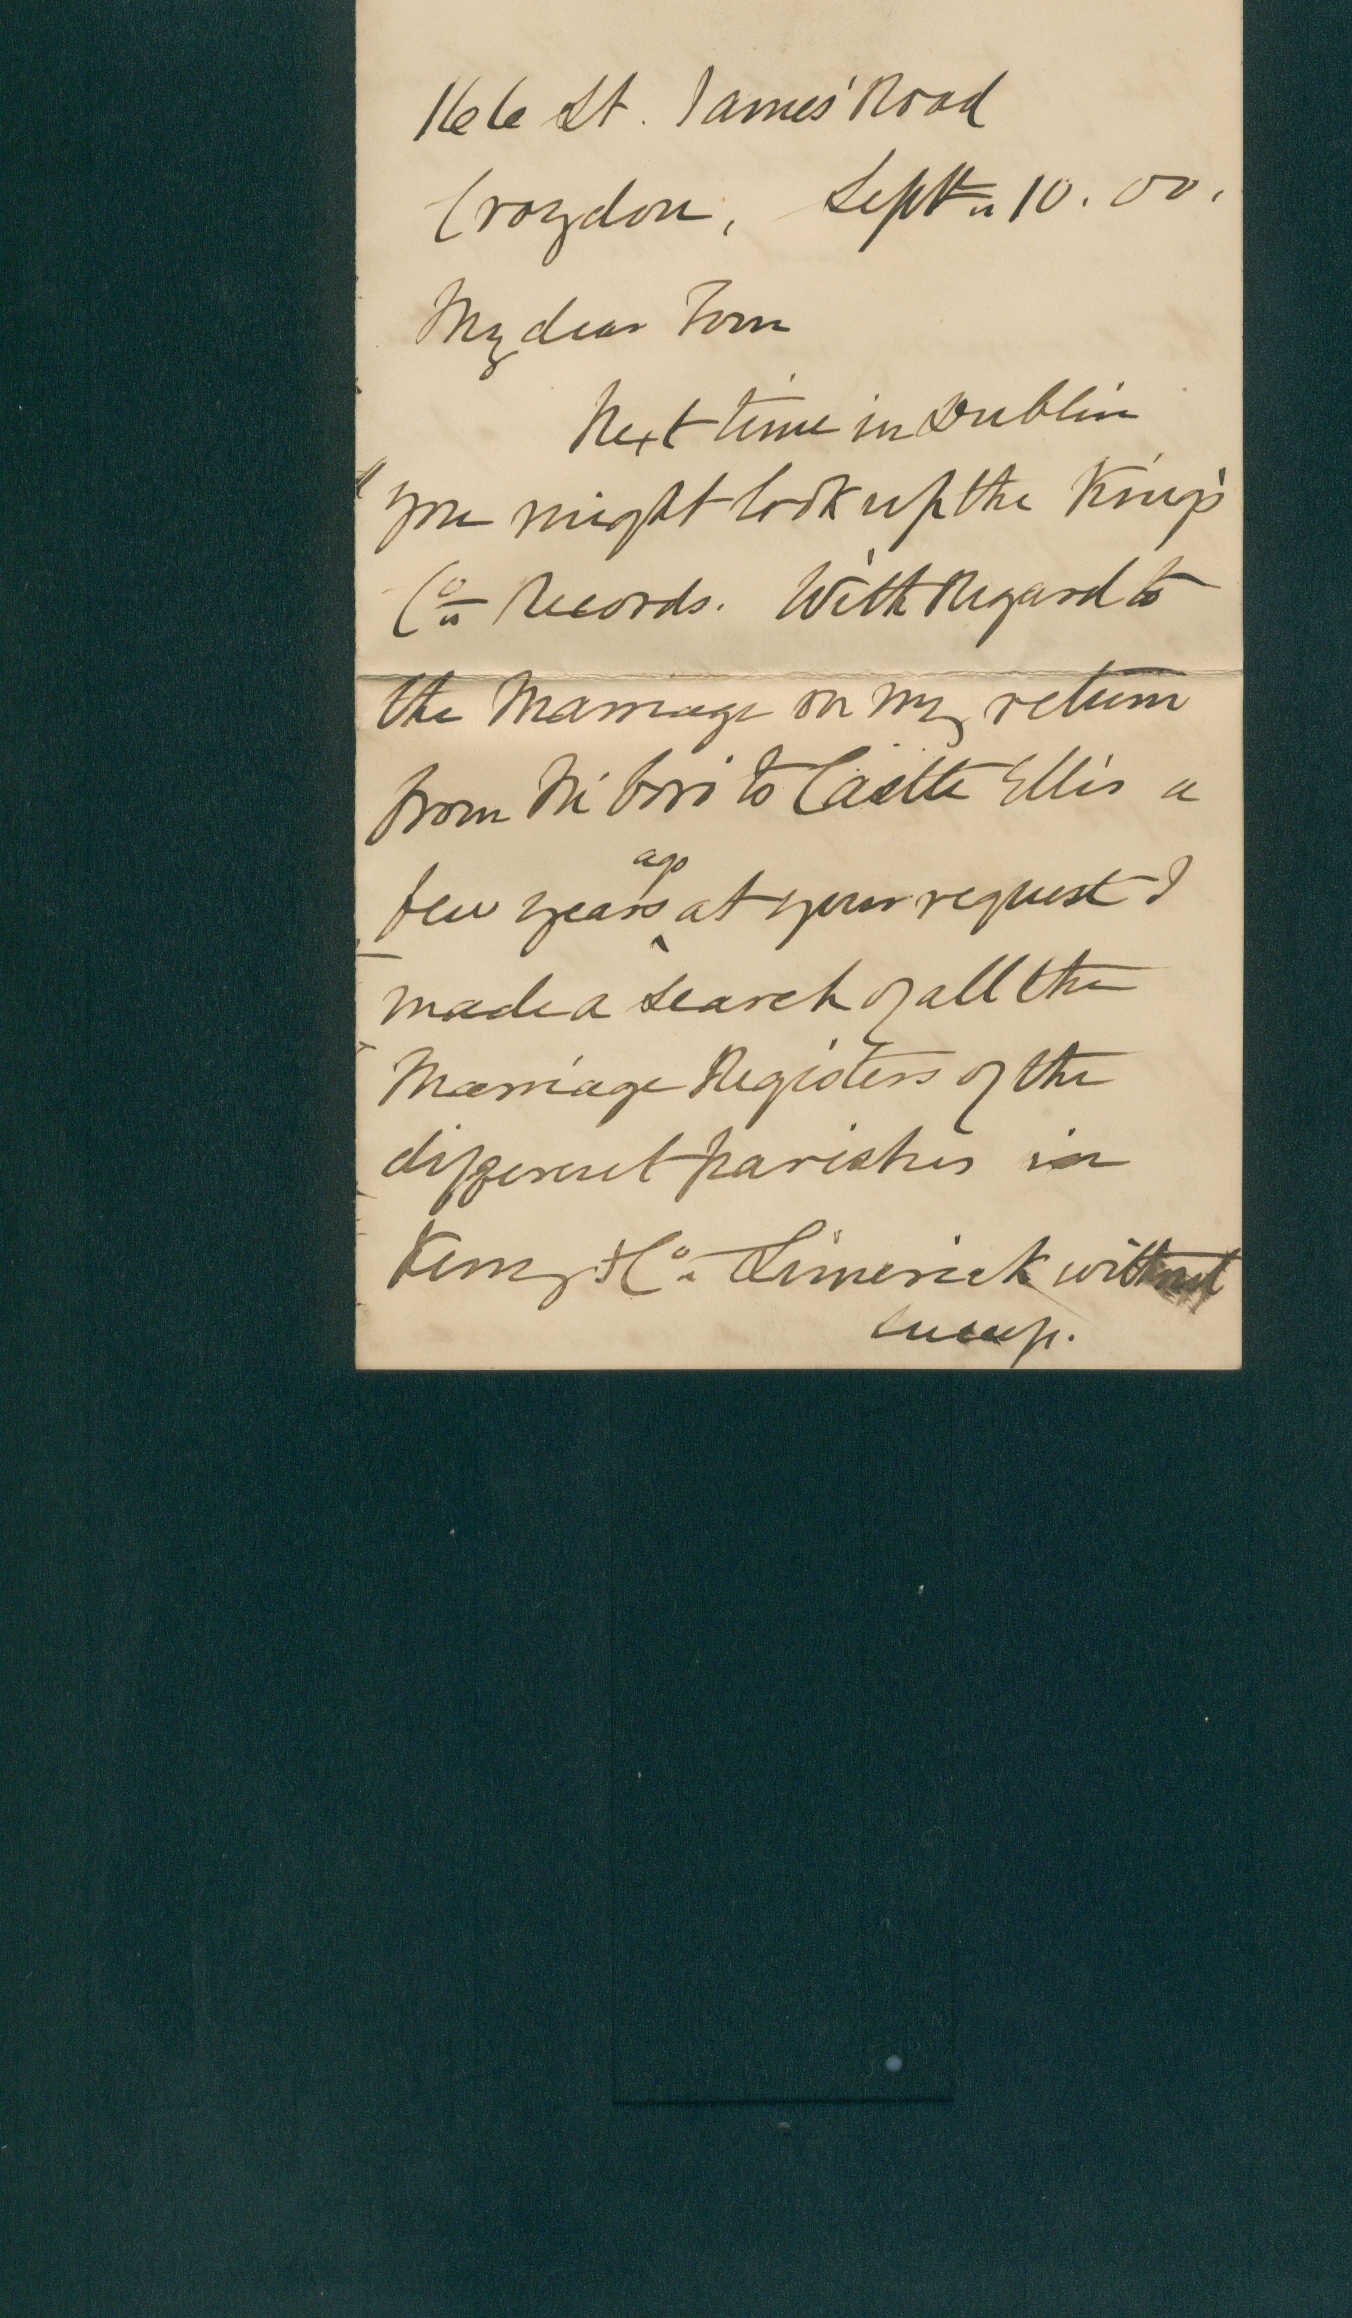 166 St. James' Road
Croydon, Septr 10. 00.
My dear Tom
Next time in Dublin
you might look up the King's
Co. Records. With Regard to
the Marriage on my return
from to Castle Ellis a
few years ago at your request I
made a search of all the
Marriage Registers of the
different parishes in
Kerry & Co. Limerick without
success.